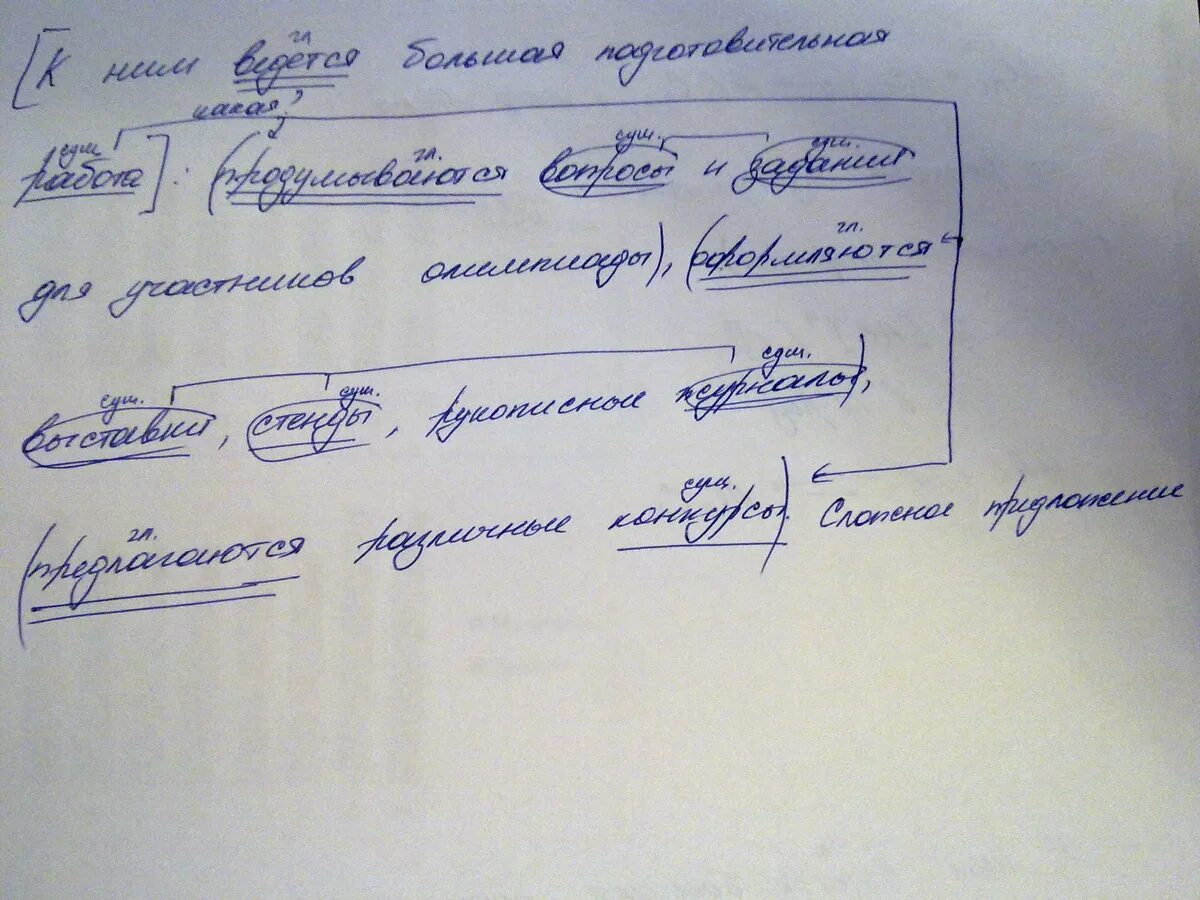 гл.
[К ним ведётся большая подготовительная
какая?
сущ. гл. сущ. сущ.
работа]: (продумываются вопросы и задания
гл.
для участников олимпиады), (оформляются
сущ. сущ. сущ.
выставки, стенды, рукописные журналы),
гл. сущ.
(предлагаются различные конкурсы). Сложное предложение